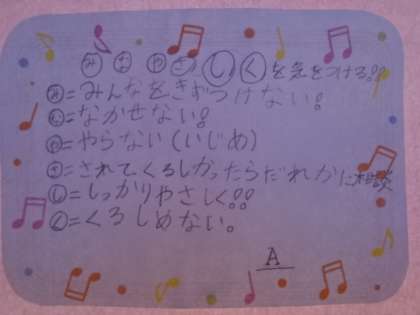 みなやさしくを気をつける!!
み=みんなをきずつけない!
な=なかせない!
や=やらない(いじめ)
さ=されて、くるしかったらだれかに相談
し=しっかりやさしく!!
く=くるしめない。
A